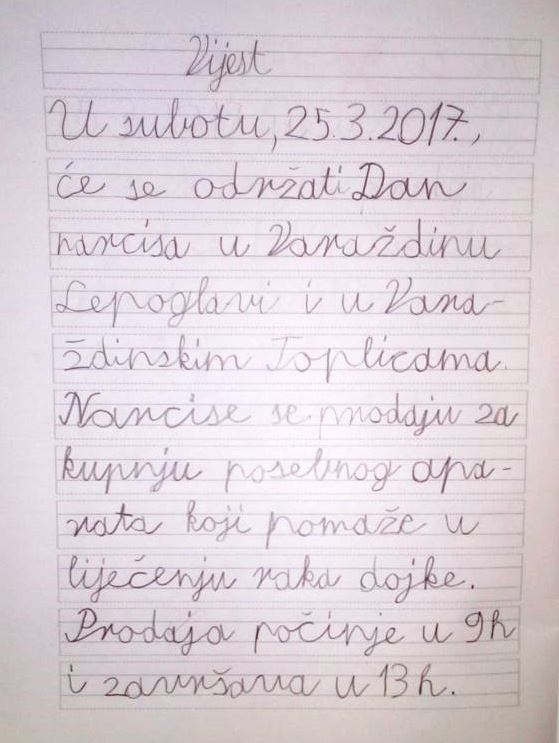 Vijest
U subotu, 25.3.2017.,
će se održati Dan
narcisa u Varaždinu
Lepoglavi i u Vara-
ždinskim Toplicama.
Narcise se prodaju za
kupnju posebnog apa-
rata koji pomaže u
liječenju raka dojke.
Prodaja počinje u 9h
i završava u 13h.